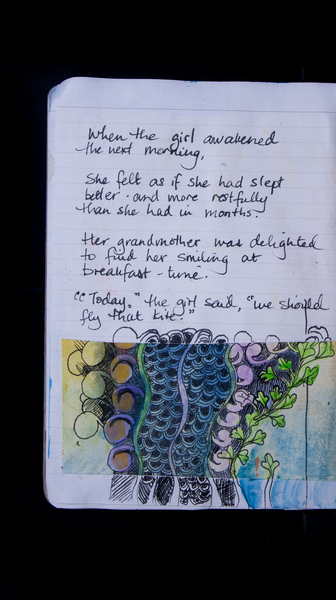 When the girl awakened
the next morning,
She felt as if she had slept
better and more restfully
than she had in months.
Her grandmother was delighted
to find her smiling at
breakfast-time.
"Today," the girl said, "we should
fly that kite."